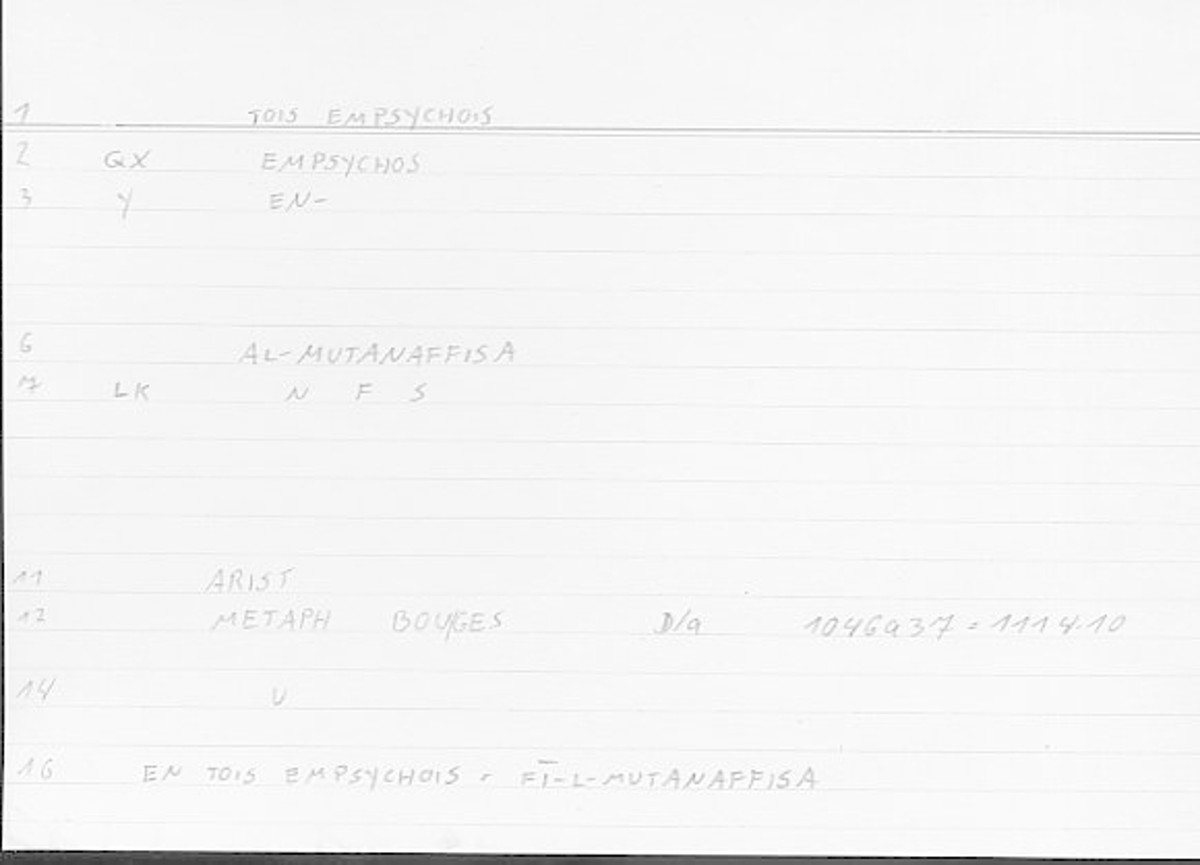 1 TOIS EMPSYCHOIS
2 GX EMPSYCHOS
3 Y EN-
6 AL-MUTANAFFISA
7 LK N F S
11 ARIST
12 METAPH BOUYGES D/a 1046a37 = 1114.10
14 U
16 EN TOIS EMPSYCHOIS = FĪ-L-MUTANAFFISA